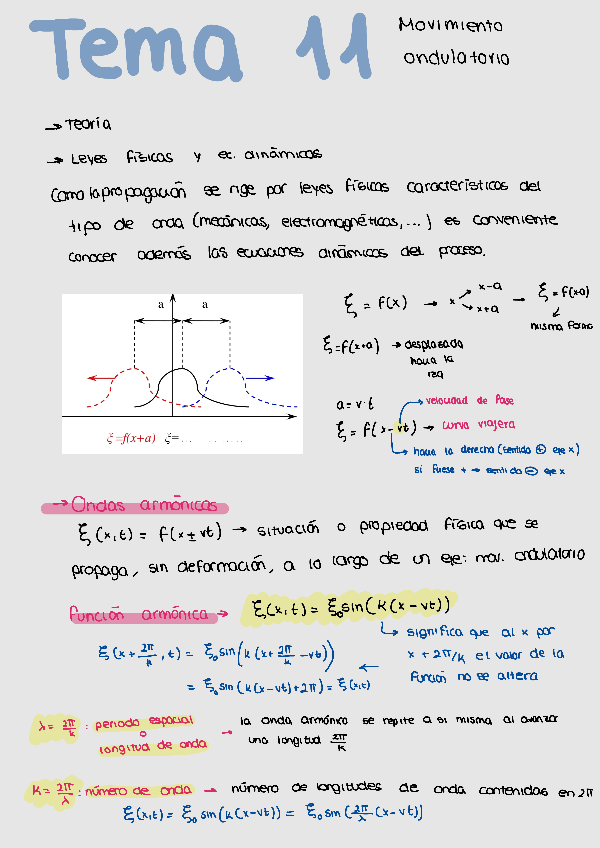 Tema 11
Movimiento
ondulatorio
→ Teoría
→ Leyes físicas y ec. dinámicas
Como la propagación se rige por leyes físicas características del
tipo de onda (mecánicas, electromagnéticas,...) es conveniente
conocer además las ecuaciones dinámicas del proceso.
a a
ξ=f(x+a) ξ=
ξ = f(x) → x x-a x+a → ξ = f(x±a)
misma forma
ξ=f(x+a) → desplazada
hacia la
izq
a = v·t
velocidad de fase
ξ = f(x-vt) → curva viajera
hacia la derecha (sentido ⊕ eje x)
si fuese + → sentido ⊖ eje x
→ Ondas armónicas
ξ(x,t) = f(x±vt) → situación o propiedad física que se
propaga, sin deformación, a lo largo de un eje: mov. ondulatorio
Función armónica → ξ(x,t) = ξ₀sin(k(x-vt))
significa que al x por
x + 2π/k el valor de la
función no se altera
ξ(x + 2π/k, t) = ξ₀sin(k(x+2π/k -vt)) ←
= ξ₀sin(k(x-vt)+2π) = ξ(x,t)
λ = 2π/k : periodo espacial
o
longitud de onda
→ la onda armónica se repite a si misma al avanzar
una longitud 2π/k
K = 2π/λ : número de onda → número de longitudes de onda contenidas en 2π
ξ(x,t) = ξ₀ sin(k(x-vt)) = ξ₀ sin(2π/λ (x-vt))